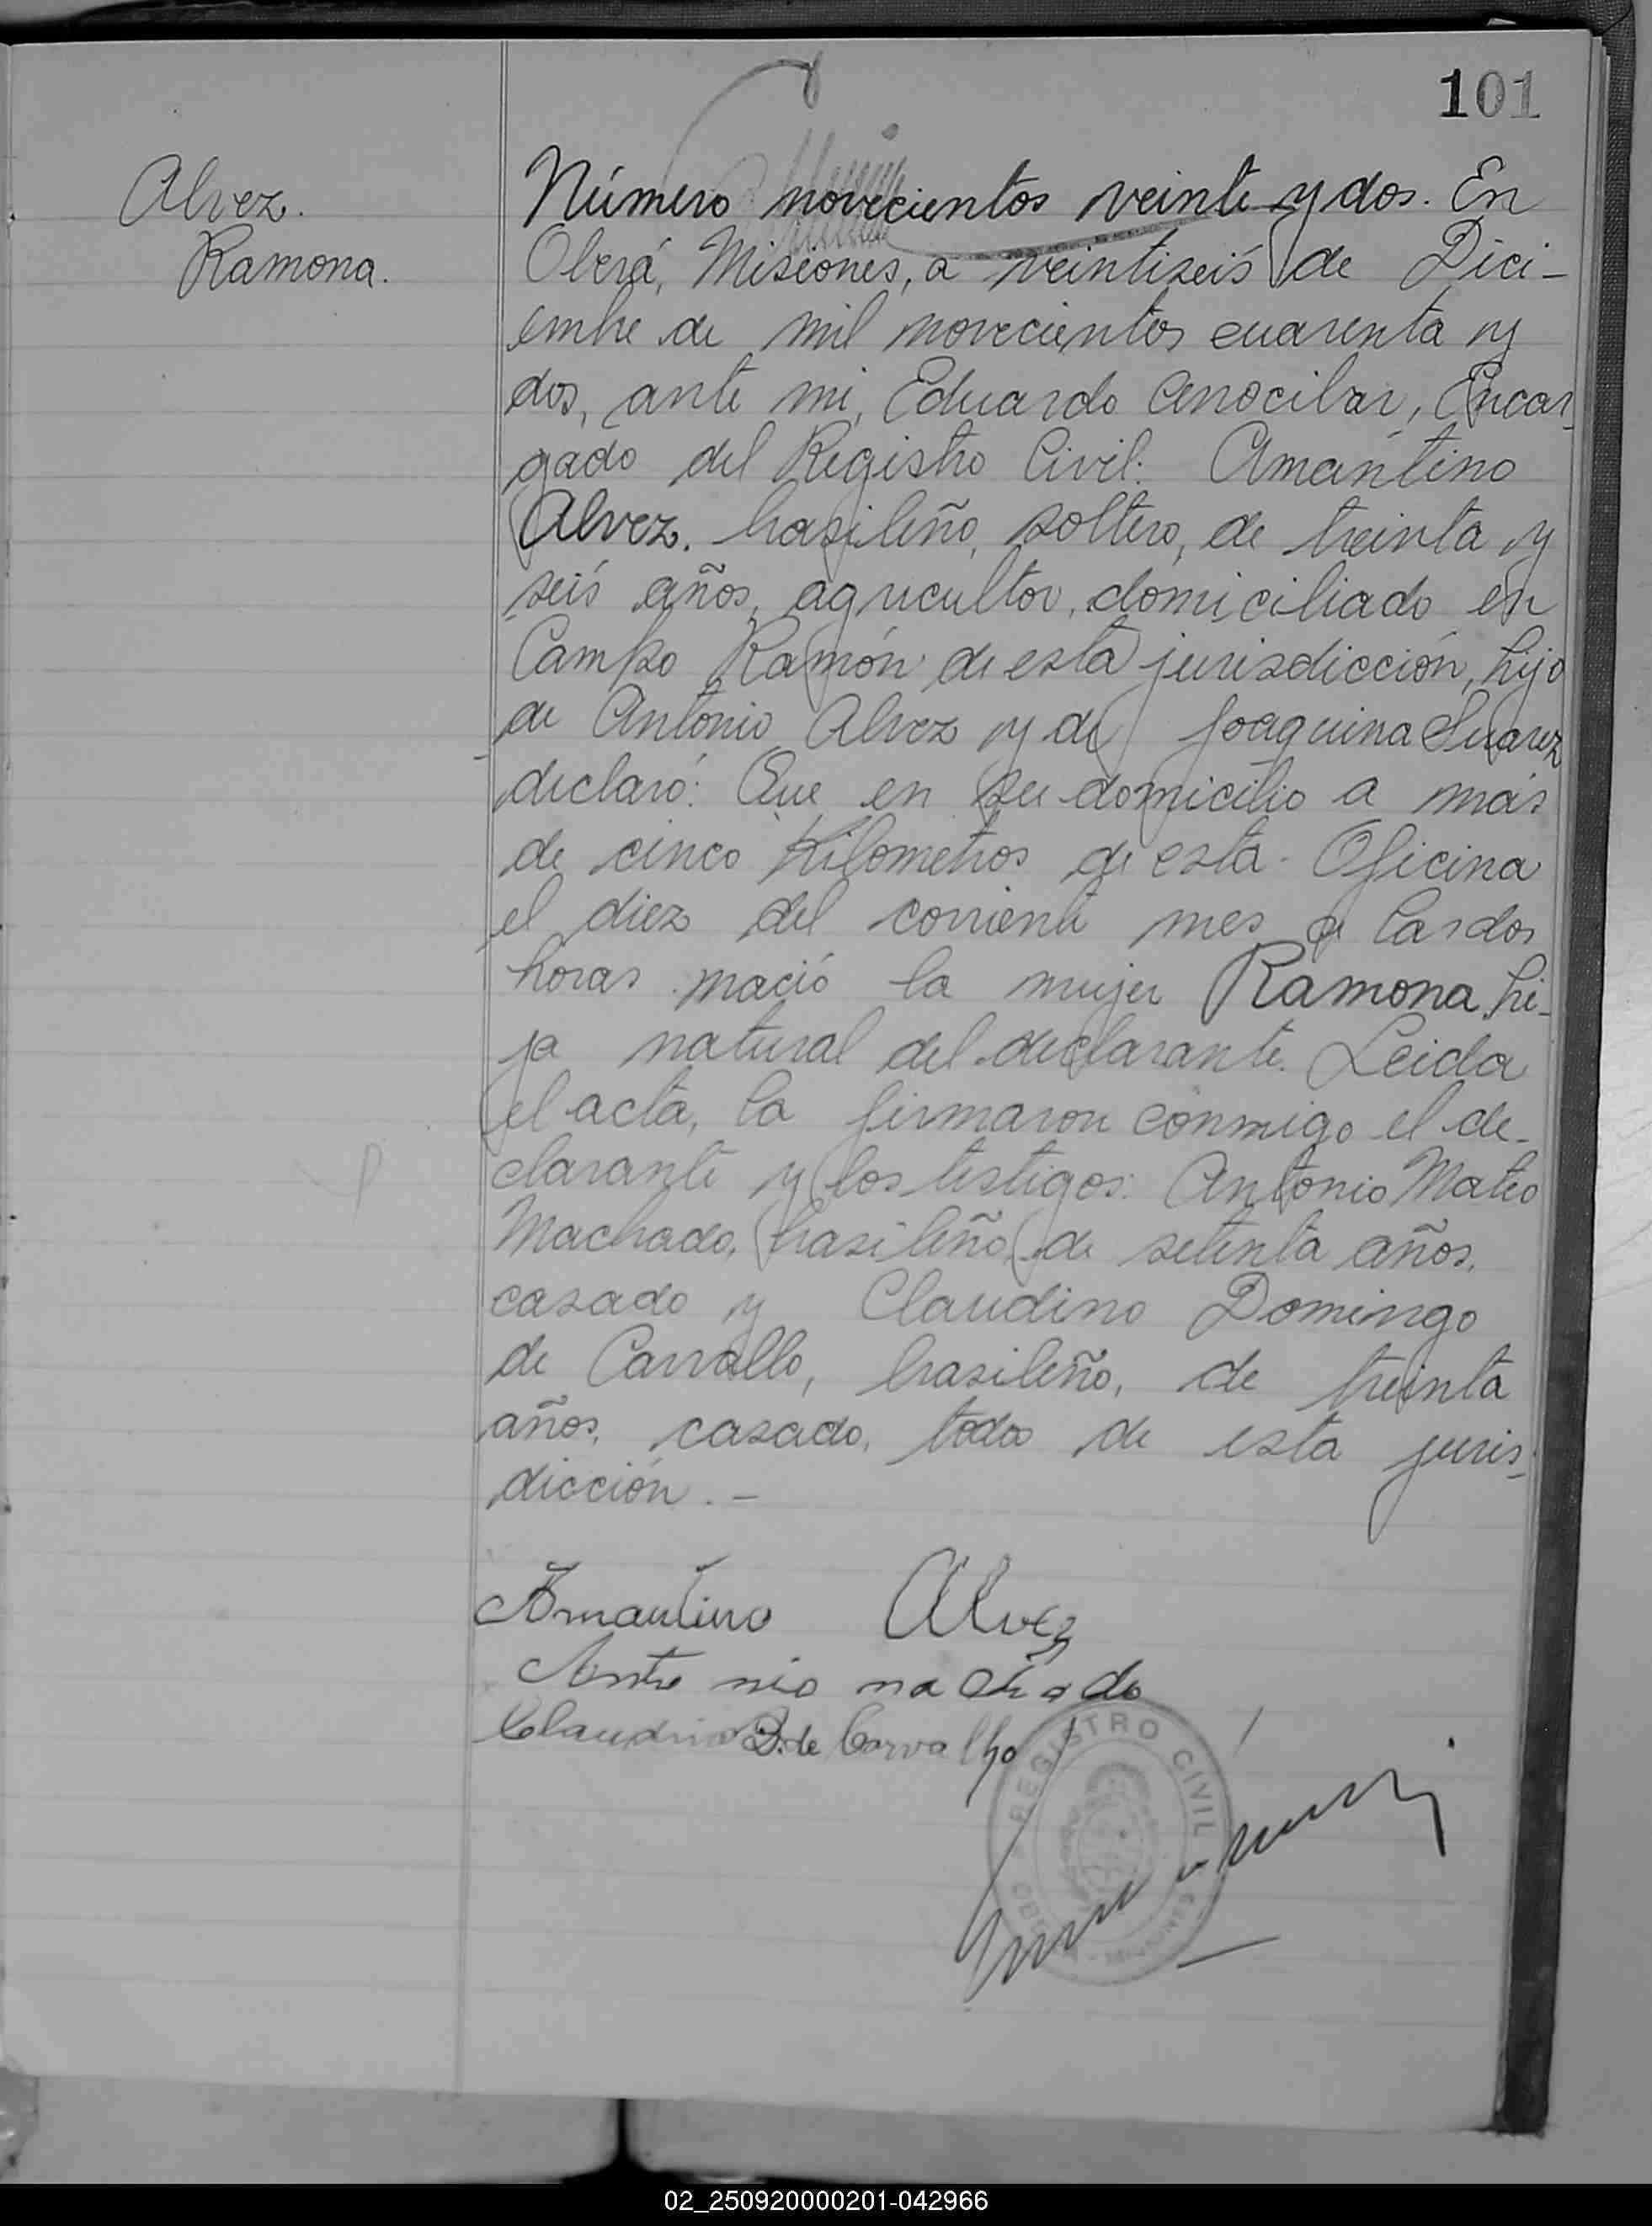 101
Alvez.
Ramona.
Número novecientos veinte y dos. En
Oberá, Misiones, a veintiseis de Dici-
embre de mil novecientos cuarenta y
dos, ante mi, Eduardo Cenocibar, Encar-
gado del Registro Civil: Amantino
Alvez. brasileño, soltero, de treinta y
seis años, agricultor, domiciliado en
Campo Ramón de esta jurisdicción, hijo
de Antonio Alvez y de Joaquina Suarez
declaró: Que en su domicilio a más
de cinco Kilometros de esta Oficina
el diez del corriente mes a las dos
horas nació la mujer Ramona, hi-
ja natural del declarante. Leida
el acta, la firmaron conmigo el de-
clarante y los testigos: Antonio Mateo
Machado, brasileño, de setenta años,
casado y Claudino Domingo
de Carvallo, brasileño, de treinta
años, casado, todos de esta juris-
dicción. -
Amantino Alvez
Anto nio machado
Claudino D. de Carvalho
REGISTRO CIVIL
02_250920000201-042966